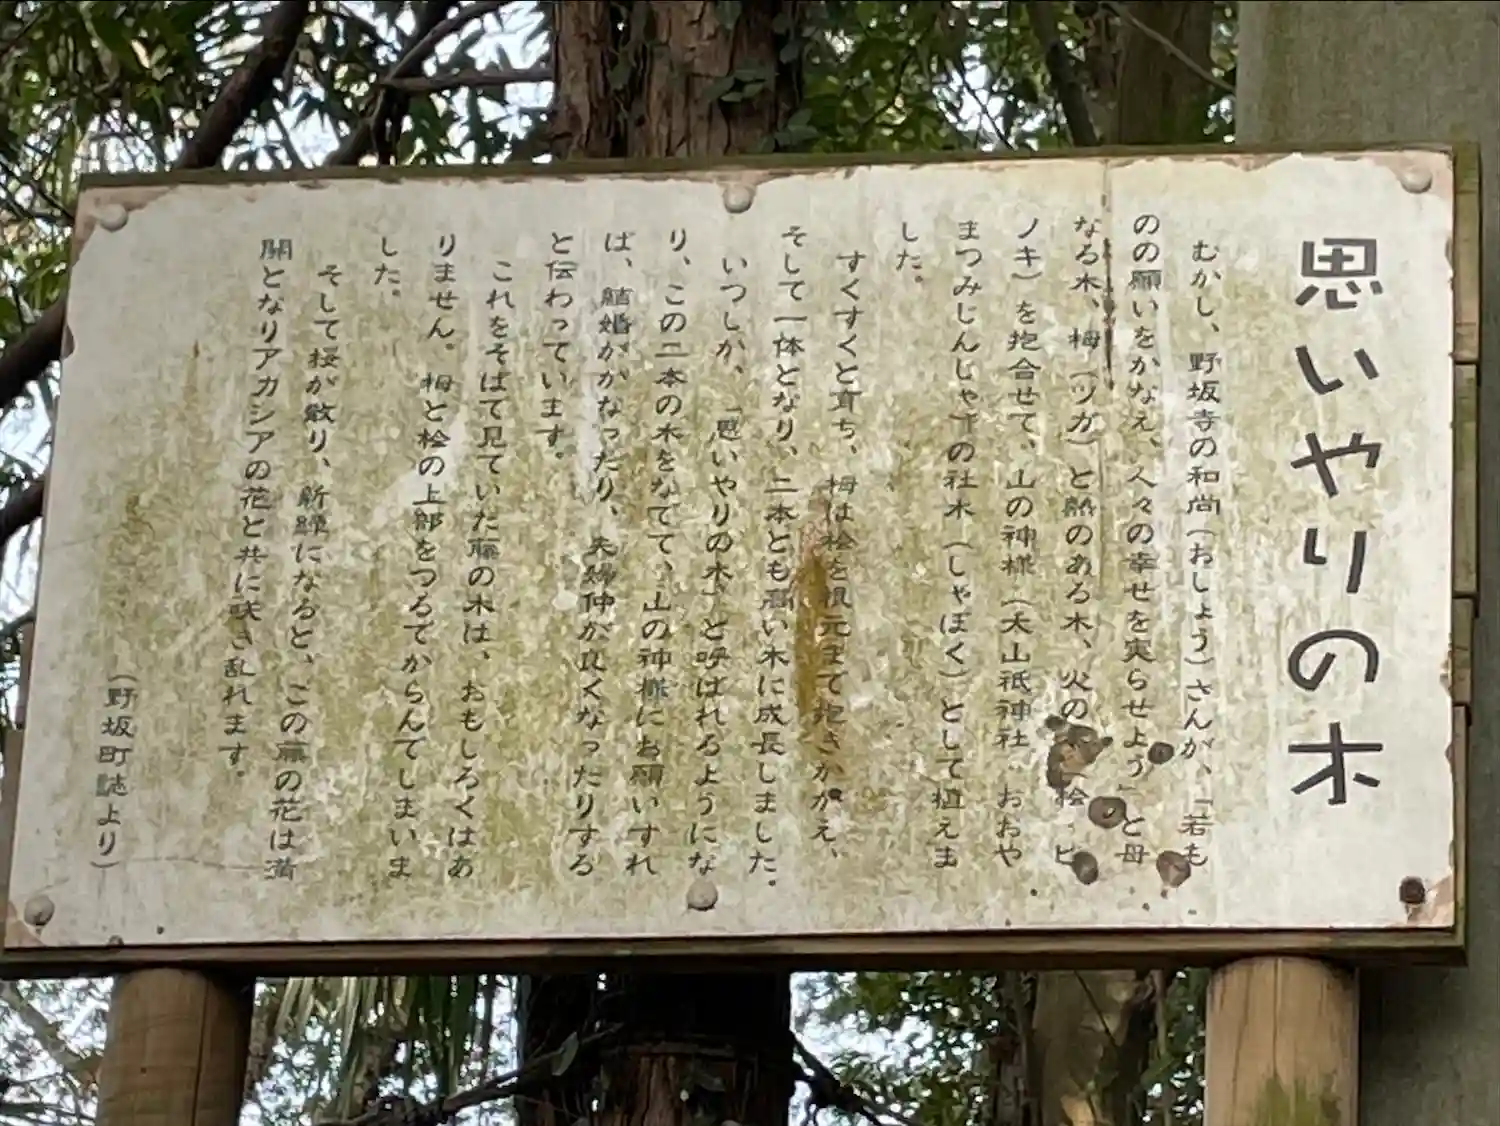 思いやりの木
むかし、野坂寺の和尚(おしょう)さんが、「若も
のの願いをかなえ、人々の幸せを実らせよう」と母
なる木、栂(ツガ)と熱のある木、火の 桧(ヒ
ノキ)を抱合せて、山の神様(大山祇神社、おおや
まつみじんじゃ)の社木(しゃぼく)として植えま
した。
すくすくと育ち、栂は桧を根元まで抱きかかえ、
そして一体となり、二本とも高い木に成長しました。
いつしか、「思いやりの木」と呼ばれるようにな
り、この二本の木をなでて、山の神様にお願いすれ
ば、結婚がかなったり、夫婦仲が良くなったりする
と伝わっています。
これをそばで見ていた藤の木は、おもしろくはあ
りません。栂と桧の上部をつるでからんでしまいま
した。
そして桜が散り、新緑になると、この藤の花は満
開となりアカシアの花と共に咲き乱れます。
(野坂町誌より)